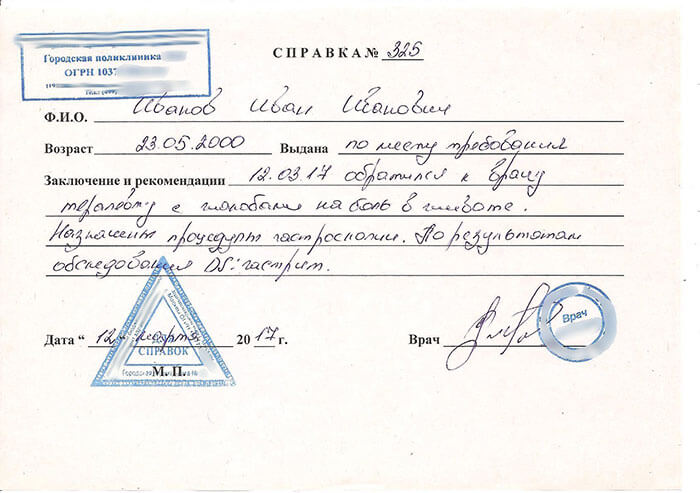 Городская поликлиника
ОГРН 1037
СПРАВКА № 325
Ф.И.О. Иванов Иван Иванович
Возраст 23.05.2000 Выдана по месту требования
Заключение и рекомендации 12.03.17 обратился к врачу
терапевту с жалобами на боль в животе.
Назначены процедуры гастроскопии. По результатам
обследования DS: гастрит.
Дата “ 12 ” марта 2017 г. Врач
Врач
СПРАВОК
М. П.